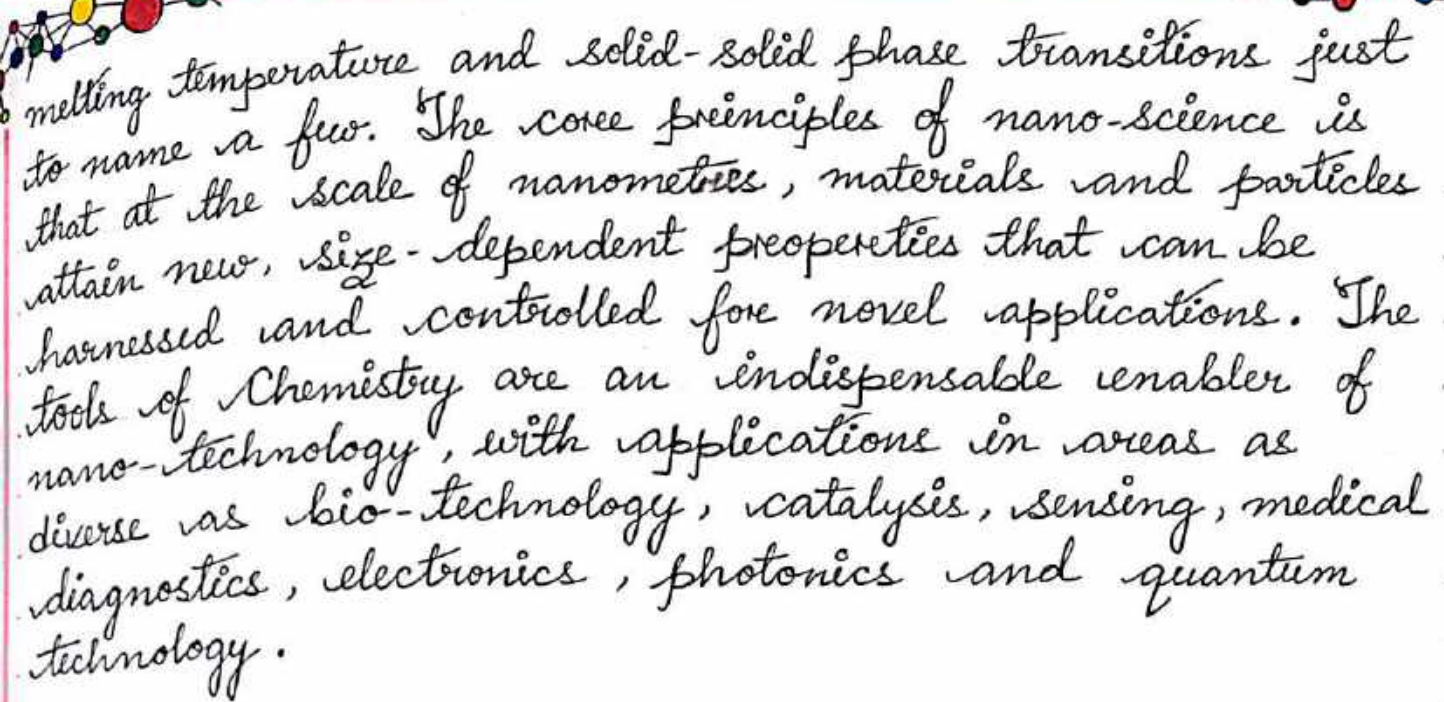 melting temperature and solid-solid phase transitions just
to name a few. The core principles of nano-science is
that at the scale of nanometres, materials and particles
attain new, size-dependent properties that can be
harnessed and controlled for novel applications. The
tools of Chemistry are an indispensable enabler of
nano-technology, with applications in areas as
diverse as bio-technology, catalysis, sensing, medical
diagnostics, electronics, photonics and quantum
technology.